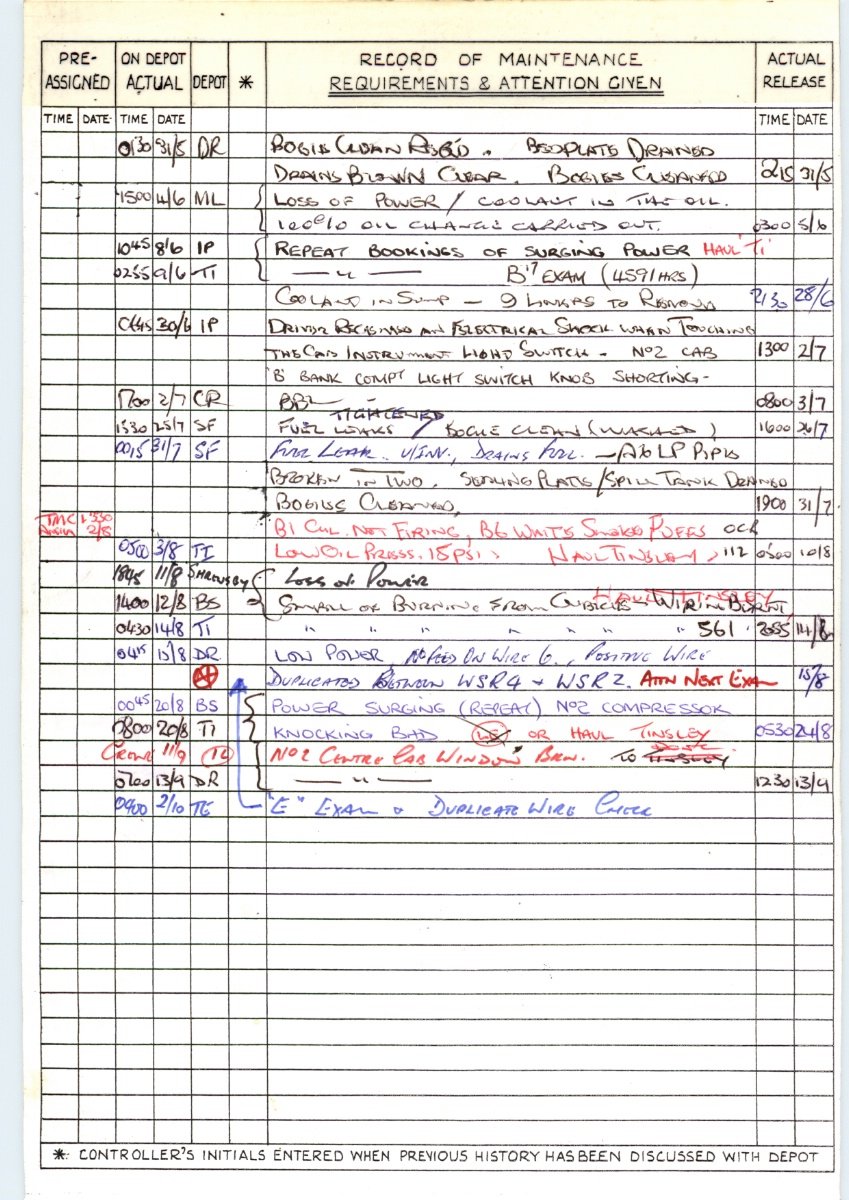 PRE- ON DEPOT RECORD OF MAINTENANCE ACTUAL
ASSIGNED ACTUAL DEPOT * REQUIREMENTS & ATTENTION GIVEN RELEASE
TIME DATE TIME DATE TIME DATE
0130 31/5 DR BOGIE CLEAN REQ'D. BEDPLATE DRAINED
DRAINS BLOWN CLEAR. BOGIES CLEANED 215 31/5
1500 4/6 ML LOSS OF POWER / COOLANT IN THE OIL.
100% OIL CHANGE CARRIED OUT. 0300 5/6
1045 8/6 IP REPEAT BOOKINGS OF SURGING POWER HAUL 'TI'
0255 9/6 TI — " — B'7 EXAM (4591 HRS)
COOLANT IN SUMP — 9 LINERS TO RENEW 2130 28/6
0445 30/6 IP DRIVER RECEIVED AN ELECTRICAL SHOCK WHEN TOUCHING
THE CAB INSTRUMENT LIGHT SWITCH - No2 CAB 1300 2/7
'B' BANK COMPT LIGHT SWITCH KNOB SHORTING-
1700 2/7 CR 0800 3/7
TIGHTENED
1530 25/7 SF FUEL LEAKS / BOGIE CLEAN (WASHED) 1600 26/7
0015 31/7 SF FUEL LEAK. U/INV., DRAINS FULL. — A6 LP PIPE
BROKEN IN TWO. SEALING PLATE/SPILL TANK DRAINED
BOGIES CLEANED, 1900 31/7
TMC 1530
2/8 B1 CYL. NOT FIRING, B6 WHITE SMOKE PUFFS OCR
0500 3/8 TI LOW OIL PRESS. 15 PSI, HAUL TINSLEY, 112 0500 10/8
1845 11/8 SHREWSBY LOSS OF POWER
HAUL TINSLEY
1400 12/8 BS SMELL OF BURNING FROM CUBICLE — WIRING BURNT,
0430 14/8 TI " " " " " " " 561 2055 14/8
0415 15/8 DR LOW POWER, NO FEED ON WIRE 6., POSITIVE WIRE
DUPLICATED BETWEEN WSR4 + WSR2. ATTN NEXT EXAM 15/8
0045 20/8 BS POWER SURGING (REPEAT) No2 COMPRESSOR
0800 20/8 TI KNOCKING BAD LE OR HAUL TINSLEY 0530 24/8
CREWE 11/9 TL No2 CENTRE CAB WINDOW BKN. TO TINSLEY
0700 13/9 DR — " — 1230 13/9
0900 2/10 TE "E" EXAM & DUPLICATE WIRE CHECK
* CONTROLLER'S INITIALS ENTERED WHEN PREVIOUS HISTORY HAS BEEN DISCUSSED WITH DEPOT